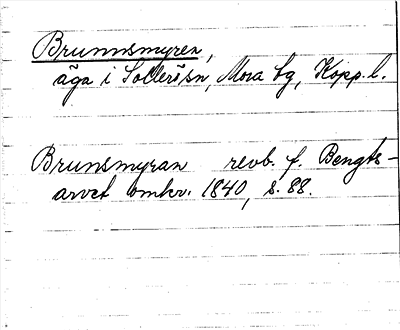 Brunnsmyren,
äga i Sollerö sn, Mora tg, Kopp. l.
Brunsmyran revb. f. Bengts-
arvet omkr. 1840, s. 88.